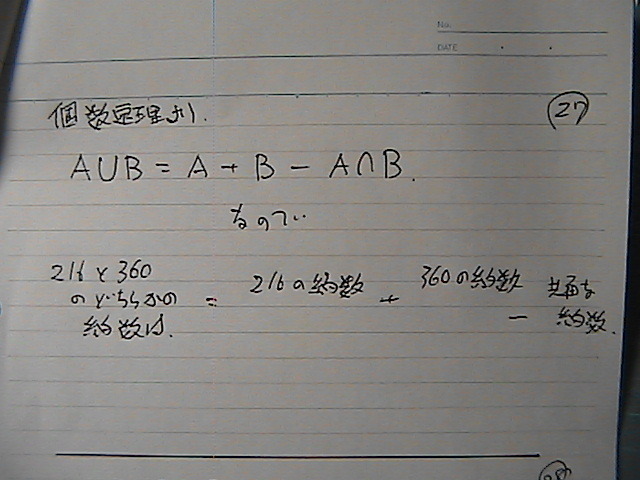 No.
DATE ・ ・
個数定理より. 27
A∪B = A + B − A∩B.
なので
216と360のどちらかの約数は. = 216の約数 + 360の約数 − 共通な約数.